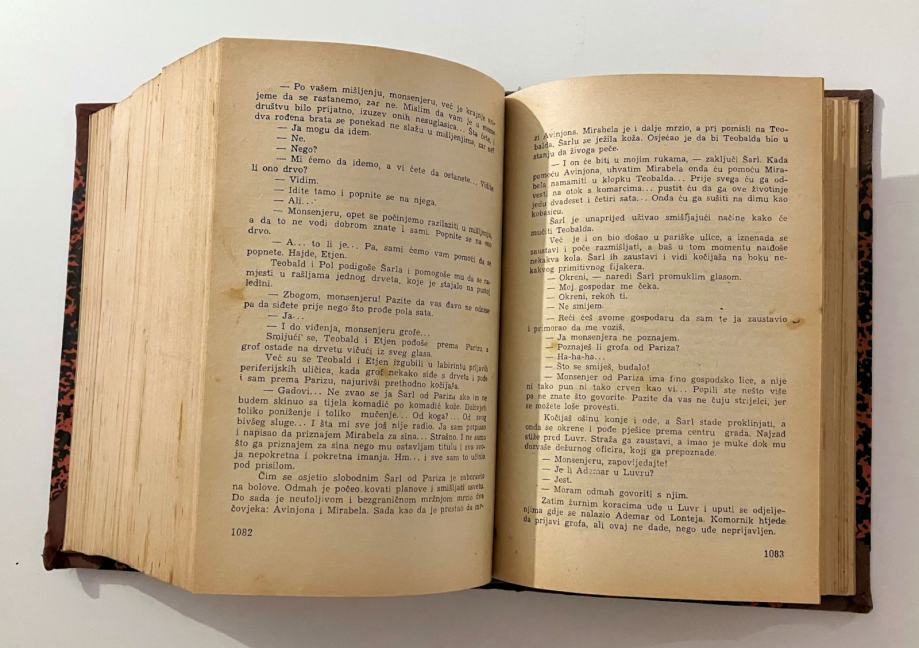 — Po vašem mišljenju, monsenjeru, već je krajnje vri-
jeme da se rastanemo, zar ne. Mislim da vam je u mome
društvu bilo prijatno, izuzev onih nesuglasica... Šta ćete, i
dva rođena brata se ponekad ne slažu u mišljenjima, zar ne?
— Ja mogu da idem.
— Ne.
— Nego?
— Mi ćemo da idemo, a vi ćete da ostanete... Vidite
li ono drvo?
— Vidim.
— Idite tamo i popnite se na njega.
— Ali...
— Monsenjeru, opet se počinjemo razilaziti u mišljenju,
a da to ne vodi dobrom znate i sami. Popnite se na ono
drvo.
— A... to li je... Pa, sami ćemo vam pomoći da se
popnete. Hajde, Etjen.
Teobald i Pol podigoše Šarla i pomogoše mu da se
mjesti u rašljama jednog drveta, koje je stajalo na pustoj
ledini.
— Zbogom, monsenjeru! Pazite da vas đavo ne odnese
pa da siđete prije nego što prođe pola sata.
— Ja...
— I do viđenja, monsenjeru grofe...
Smijući se, Teobald i Etjen pođoše prema Parizu a
grof ostade na drvetu vičući iz sveg glasa.
Već su se Teobald i Etjen izgubili u labirintu prljavih
periferijskih uličica, kada grof nekako siđe s drveta i pođe
i sam prema Parizu, najurivši prethodno kočijaša.
— Gadovi... Ne zvao se ja Šarl od Pariza ako im ne
budem skinuo sa tijela komadić po komadić kože. Doživjeti
toliko poniženje i toliko mučenje... Od koga?... Od svog
bivšeg sluge... I šta mi sve još nije radio. Ja sam potpisao
i napisao da priznajem Mirabela za sina... Strašno. I ne samo
što ga priznajem za sina nego mu ostavljam titulu i sva svo-
ja nepokretna i pokretna imanja. Hm... i sve sam to učinio
pod prisilom.
Čim se osjetio slobodnim Šarl od Pariza je zaboravio
na bolove. Odmah je počeo kovati planove i smišljati osvetu.
Do sada je neutoljivom i bezgraničnom mržnjom mrzio dva
čovjeka: Avinjona i Mirabela. Sada kao da je prestao da mr-
1082
zi Avinjona. Mirabela je i dalje mrzio, a pri pomisli na Teo-
balda, Šarlu se ježila koža. Osjećao je da bi Teobalda bio u
stanju da živoga peče.
— I on će biti u mojim rukama, — zaključi Šarl. Kada
pomoću Avinjona, uhvatim Mirabela onda ću pomoću Mira-
bela namamiti u klopku Teobalda... Prije svega ću ga od-
vesti na otok a komarcima... pustit ću da ga ove životinje
jeđu dvadeset i četiri sata... Onda ću ga sušiti na dimu kao
kobasicu.
Šarl je unaprijed uživao smišljajući načine kako će
mučiti Teobalda.
Već je i on bio došao u pariške ulice, a iznenada se
zaustavi i poče razmišljati, a baš u tom momentu naiđoše
nekakva kola. Šarl ih zaustavi i vidi kočijaša na boku ne-
kakvog primitivnog fijakera.
— Okreni, — naredi Šarl promuklim glasom.
— Moj gospodar me čeka.
— Okreni, rekoh ti.
— Ne smijem.
— Reći ćeš svome gospodaru da sam te ja zaustavio
i primorao da me voziš.
— Ja monsenjera ne poznajem.
— Poznaješ li grofa od Pariza?
— Ha-ha-ha...
— Što se smiješ, budalo!
— Monsenjer od Pariza ima fino gospodsko lice, a nije
ni tako pun ni tako crven kao vi... Popili ste nešto više
pa ne znate što govorite. Pazite da vas ne čuju strijelci, jer
se možete loše provesti.
Kočijaš ošinu konje i ode, a Šarl stade proklinjati, a
onda se okrene i pođe pješice prema centru grada. Najzad
stiže pred Luvr. Straža ga zaustavi, a imao je muke dok mu
dozvaše dežurnog oficira, koji ga prepoznade.
— Monsenjeru, zapovijedajte!
— Je li Ademar u Luvru?
— Jest.
— Moram odmah govoriti s njim.
Zatim žurnim koracima uđe u Luvr i uputi se odjelje-
njima gdje se nalazio Ademar od Lonteja. Komornik htjede
da prijavi grofa, ali ovaj ne dade, nego uđe neprijavljen.
1083